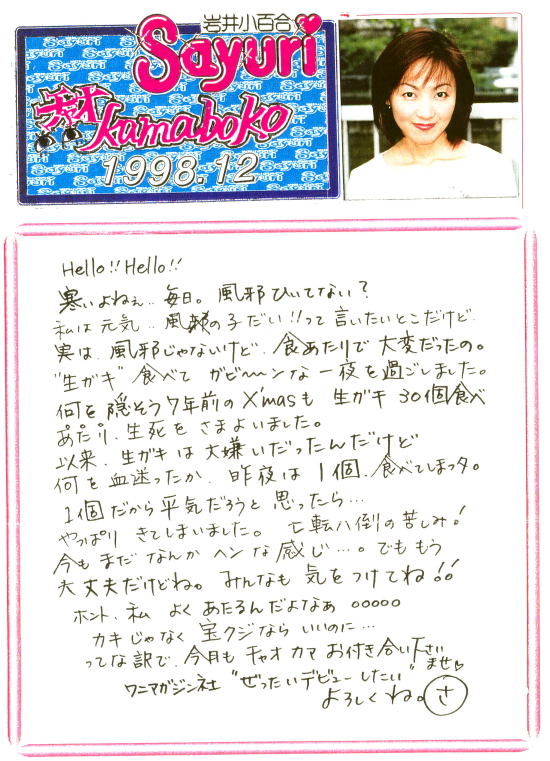 岩井小百合
Sayuri
チャオ
Kamaboko
1998.12
Hello!! Hello!!
寒いよねぇ‥毎日。風邪ひいてない?
私は元気‥風邪の子だい!!って言いたいとこだけど
実は、風邪じゃないけど、食あたりで大変だったの。
"生ガキ"食べて ガビ〜ンな一夜を過ごしました。
何を隠そう7年前のX'masも 生ガキ30個食べ
あたり、生死をさまよいました。
以来、生ガキは大嫌いだったんだけど
何を血迷ったか、昨夜は 1個、食べてしまっタ。
1個だから平気だろうと思ったら…
やっぱり きてしまいました。七転八倒の苦しみ!
今もまだなんかヘンな感じ…。でももう
大丈夫だけどね。みんなも気をつけてね!!
ホント、私 よくあたるんだよなぁ ○○○○○
カキじゃなく宝クジならいいのに…
ってな訳で、今月もチャオカマお付き合い下さいませ♡
ワニマガジン社 "ぜったいデビューしたい"
よろしくね。さ